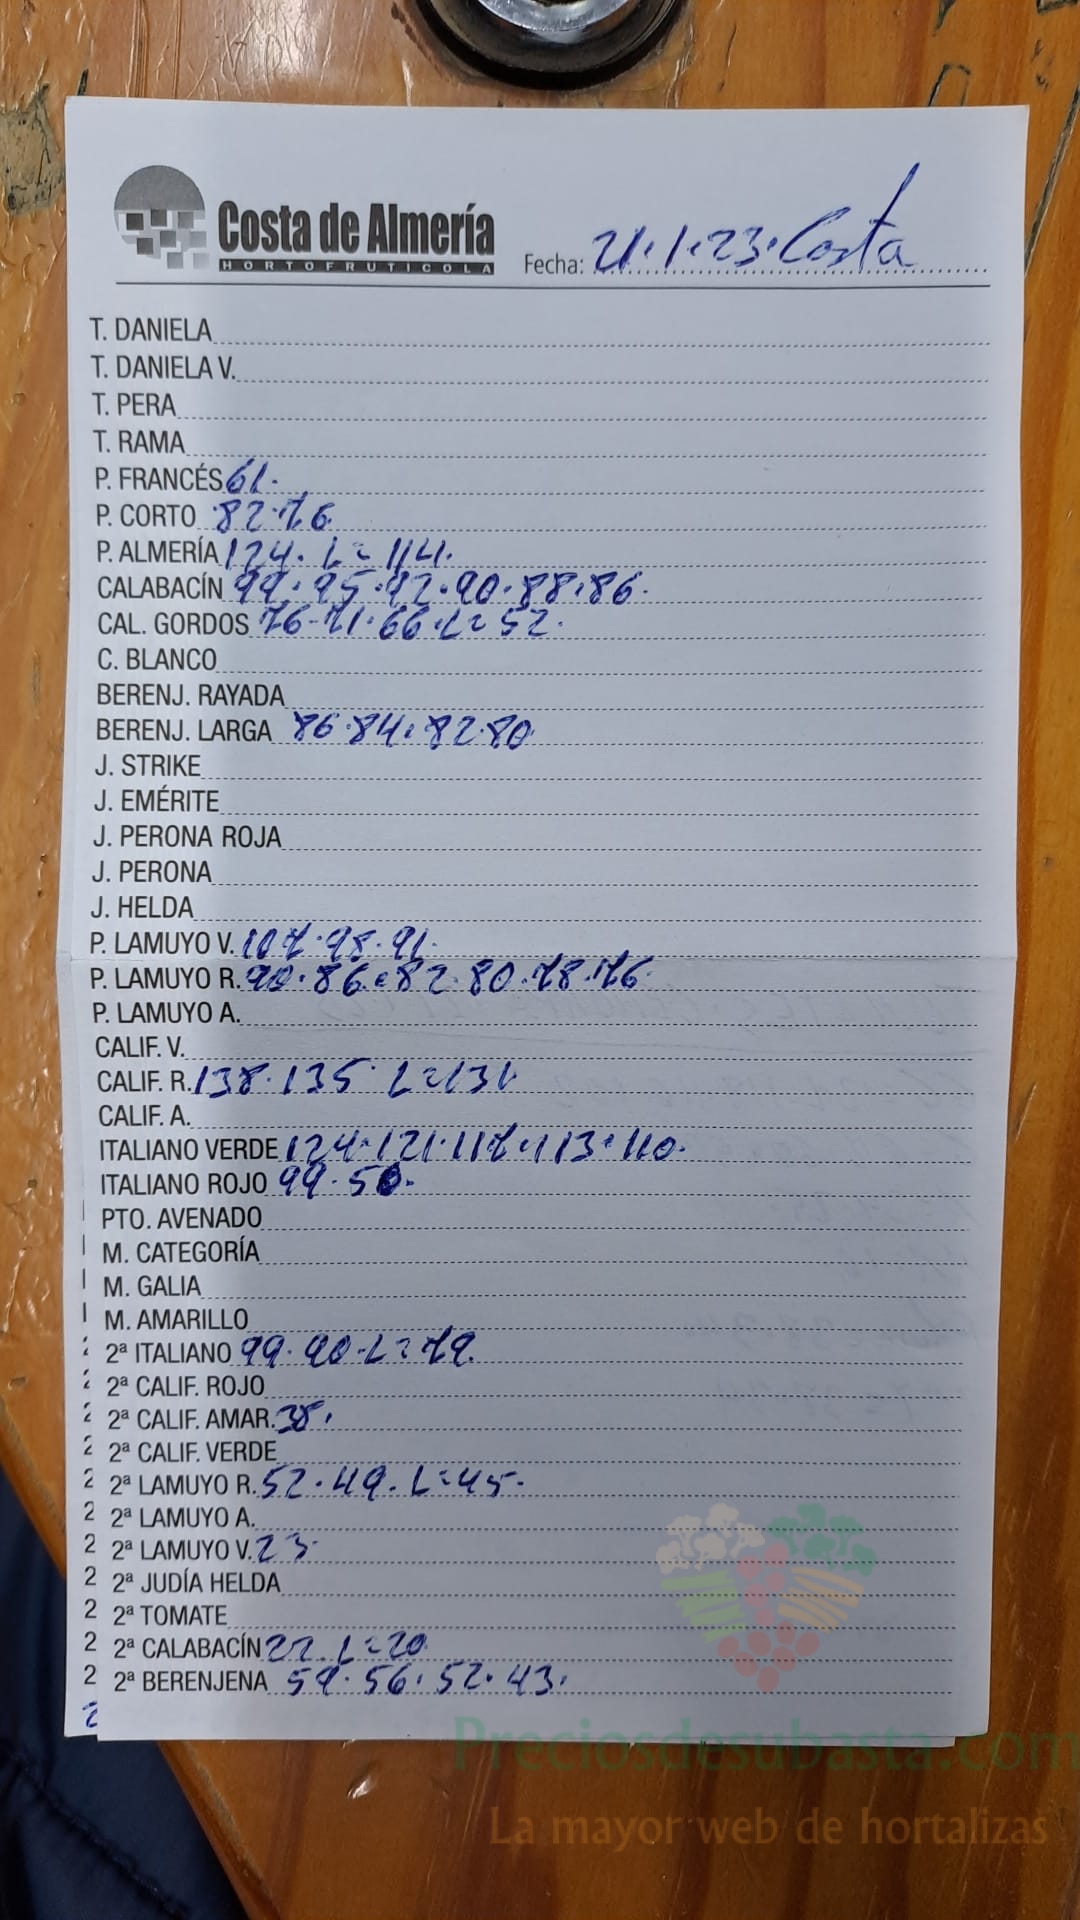 Costa de Almería
HORTOFRUTICOLA
Fecha: 21.1.23. Costa
T. DANIELA
T. DANIELA V.
T. PERA
T. RAMA
P. FRANCÉS 61.
P. CORTO 82.76
P. ALMERÍA 124. L=114.
CALABACÍN 99.95.92.90.88.86.
CAL. GORDOS 76-71.66.L=52.
C. BLANCO
BERENJ. RAYADA
BERENJ. LARGA 86.84.82.80
J. STRIKE
J. EMÉRITE
J. PERONA ROJA
J. PERONA
J. HELDA
P. LAMUYO V. 107.98.91.
P. LAMUYO R. 90.86.82.80.78.76
P. LAMUYO A.
CALIF. V.
CALIF. R. 138.135 L=131
CALIF. A.
ITALIANO VERDE 124.121.117.113.110.
ITALIANO ROJO 99.50.
PTO. AVENADO
M. CATEGORÍA
M. GALIA
M. AMARILLO
2ª ITALIANO 99.90.L=79.
2ª CALIF. ROJO
2ª CALIF. AMAR. 38.
2ª CALIF. VERDE
2ª LAMUYO R. 52.49.L=45.
2ª LAMUYO A.
2ª LAMUYO V. 23.
2ª JUDÍA HELDA
2ª TOMATE
2ª CALABACÍN 22. L=20
2ª BERENJENA 59.56.52.43.
Preciosdesubasta.com
La mayor web de hortalizas